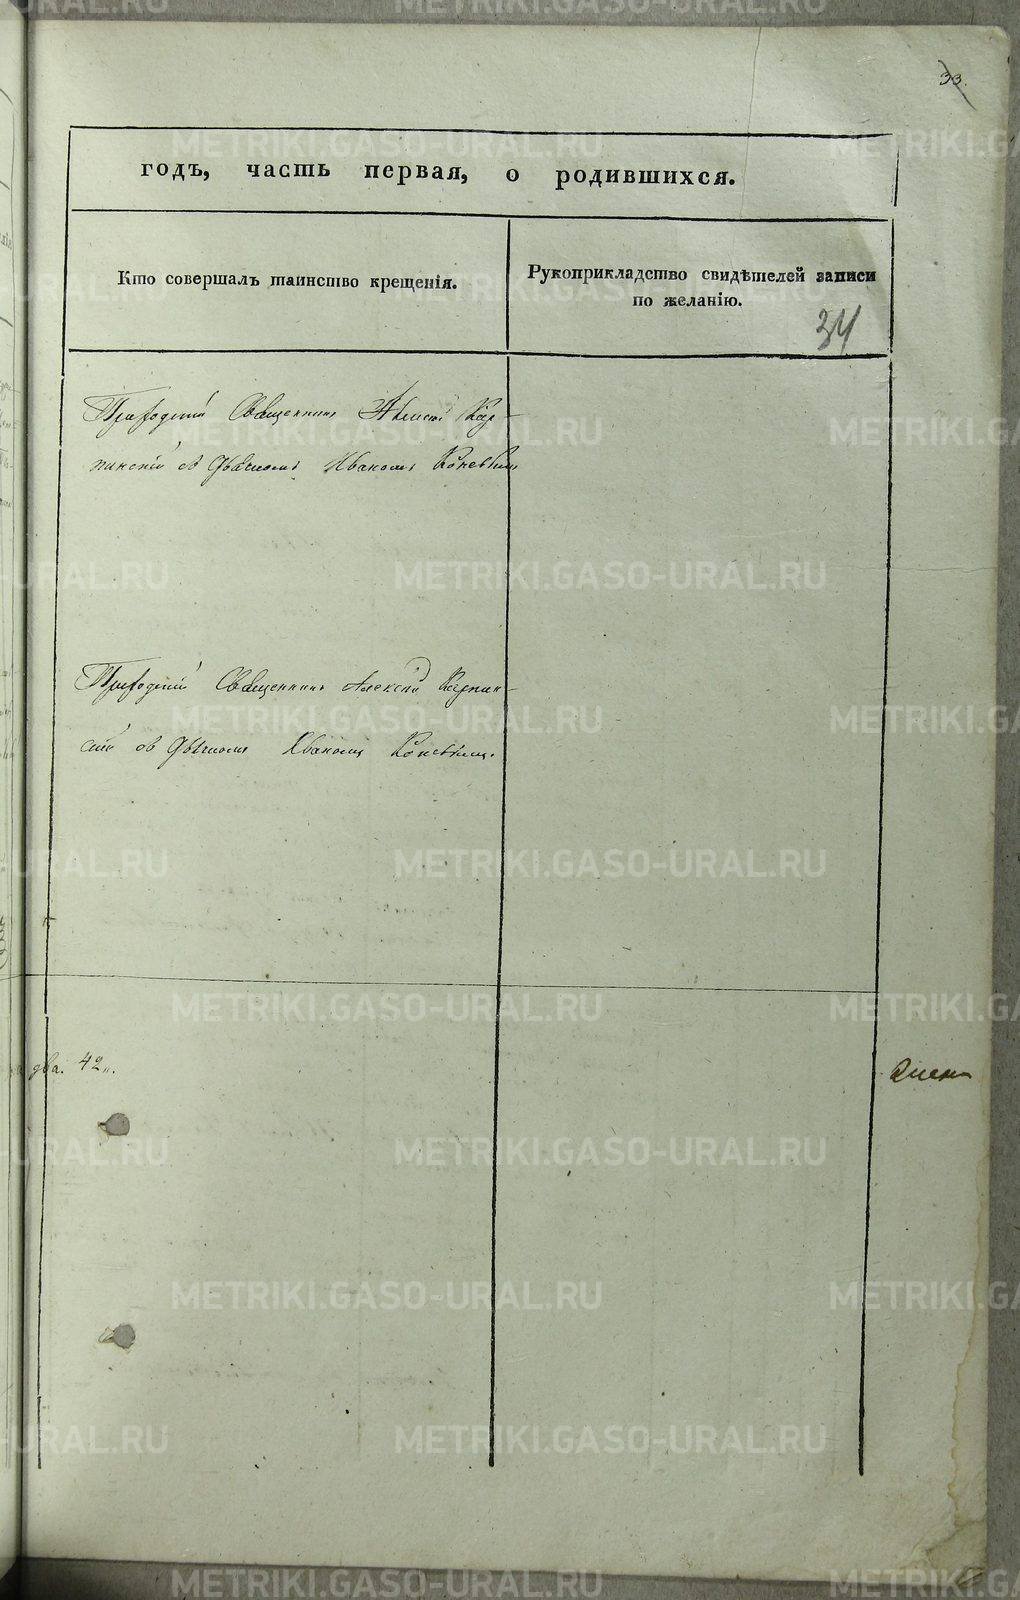 33.
годъ, часть первая, о родившихся.
Кто совершалъ таинство крещенія.
Рукоприкладство свидѣтелей записи
по желанію.
34
Приходскій Священникъ Алексій Кар-
пинскій съ Дьячкомъ Иваномъ Коневымъ
Приходскій Священникъ Алексій Карпин-
скій съ Дьячкомъ Иваномъ Коневымъ.
два. 42.
METRIKI.GASO-URAL.RU